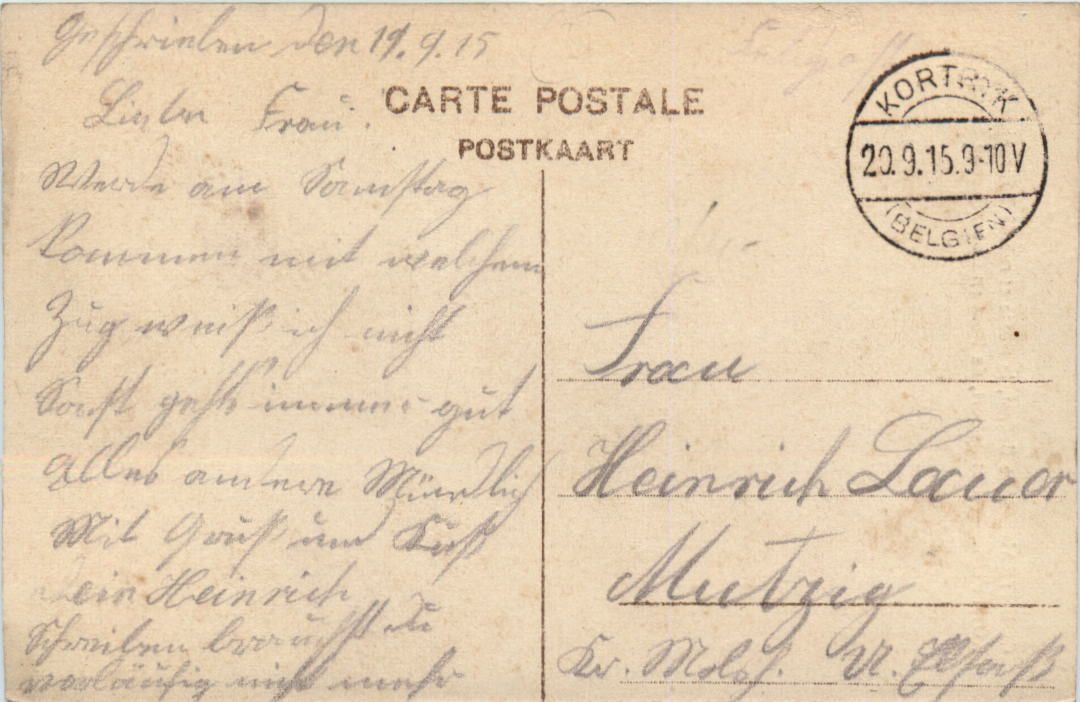 Geschrieben den 19.9.15
CARTE POSTALE
POSTKAART
Liebe Frau.
Werde am Samstag
kommen mit welchem
Zug weiß ich nicht
Sonst gehts immer gut
Alles andere Mündlich
Mit Gruß und Kuß
Dein Heinrich
Schreiben brauchst du
vorläufig nicht mehr
KORTRYK
20.9.15.9-10V
(BELGIEN)
Frau
Heinrich Lauer
Mutzig
Kr. Mols. U. Elsaß